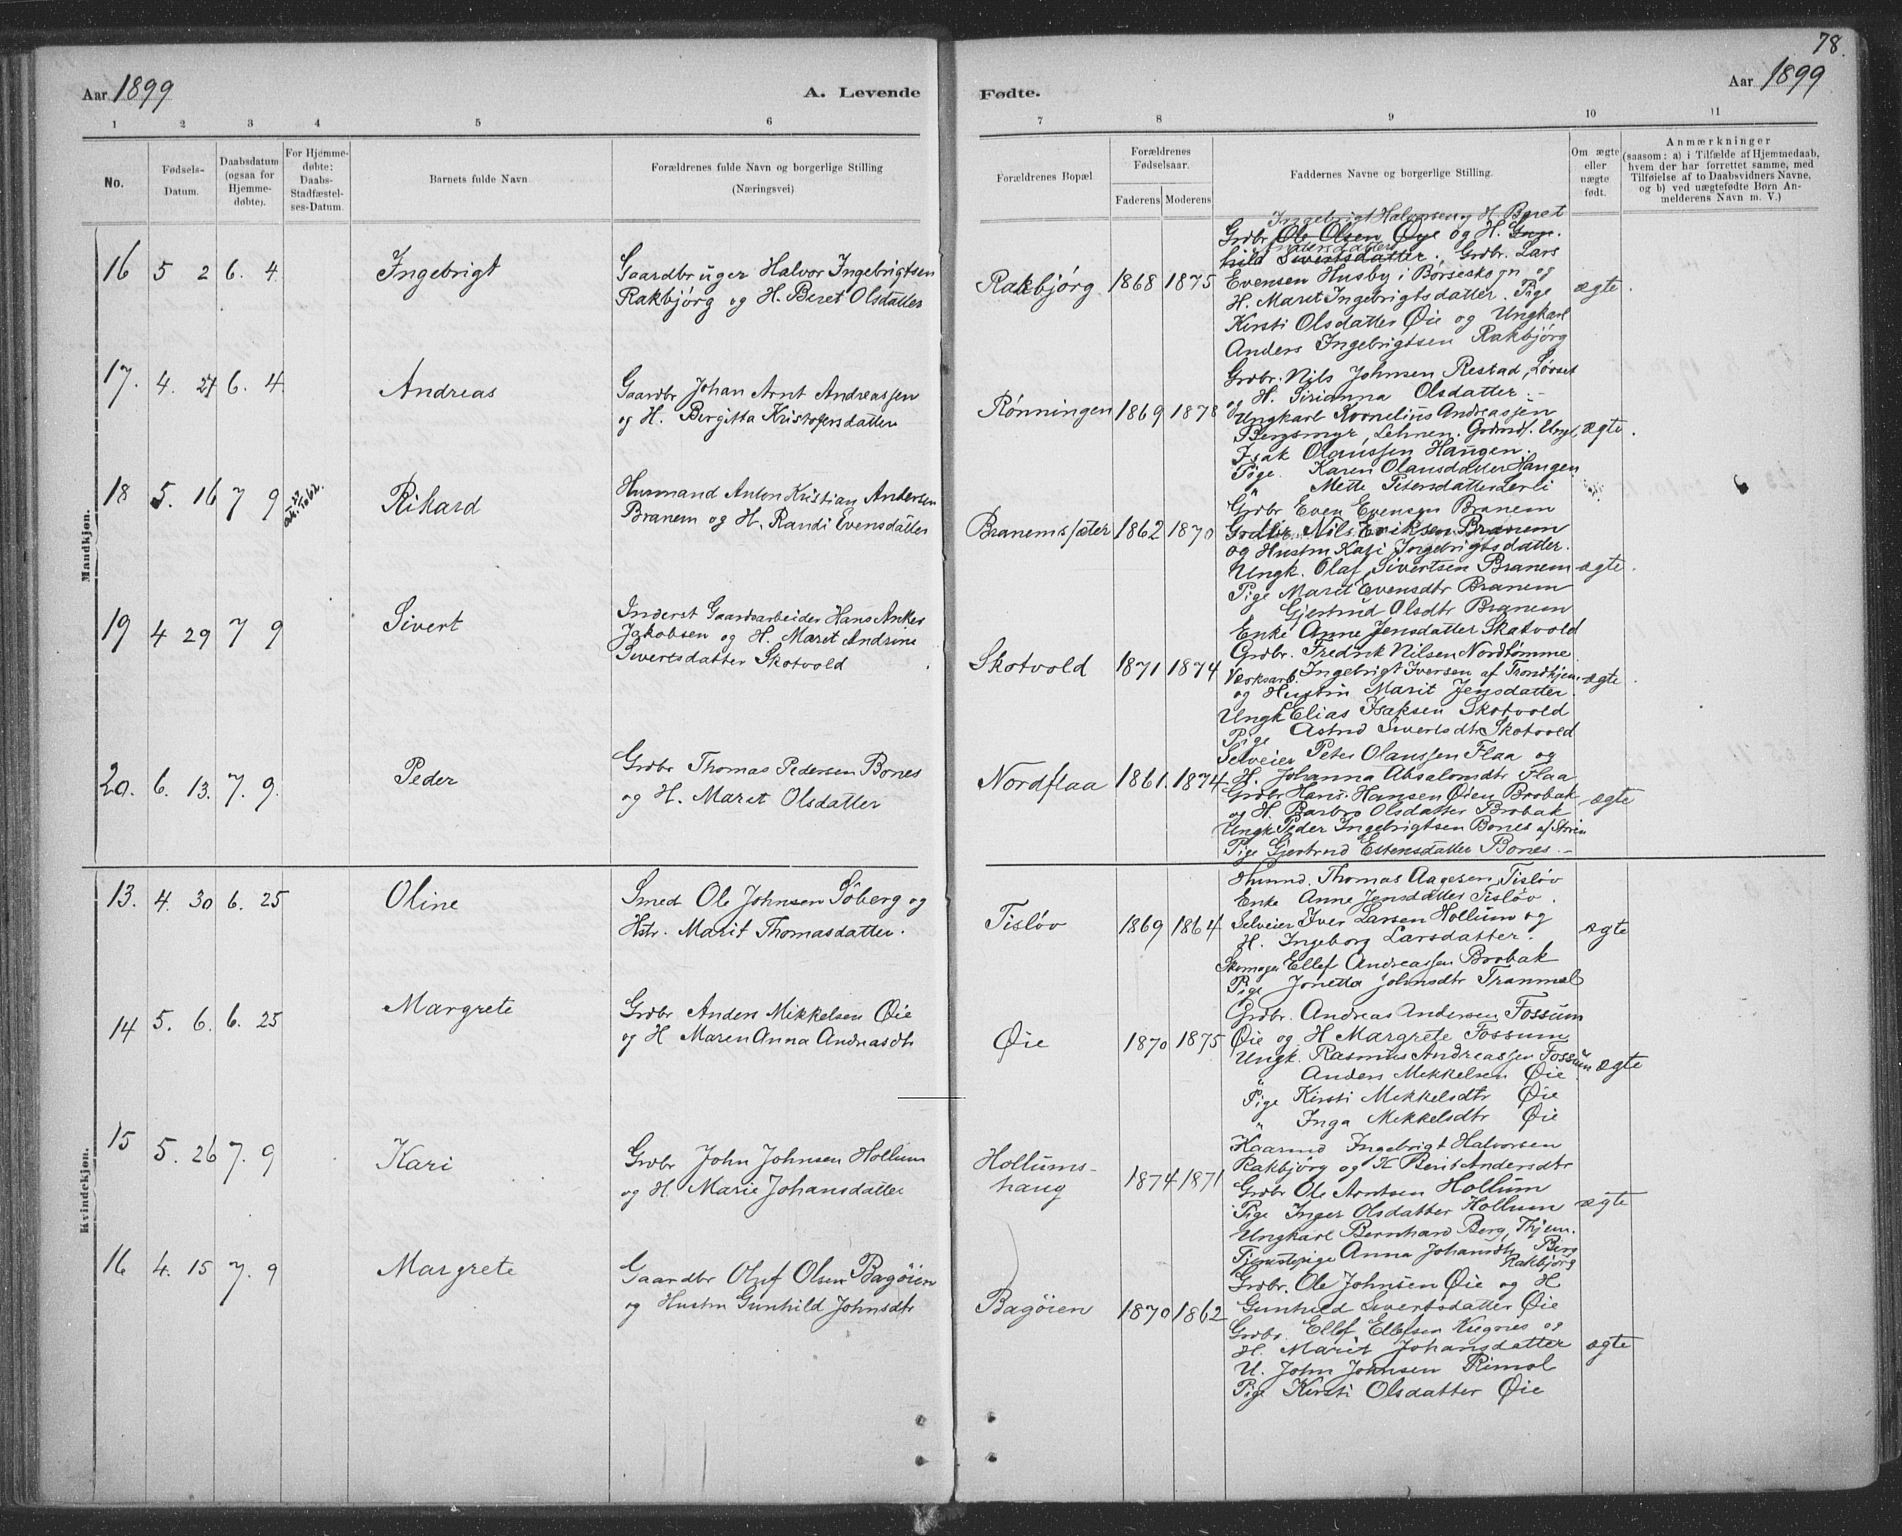 78.
Aar 1899
A. Levende
Fødte.
Aar 1899
1 2 3 4 5 6 7 8 9 10 11
No.
Fødsels-
Datum.
Daabsdatum
(ogsaa for
Hjemme-
døbte).
For Hjemme-
døbte:
Daabs-
Stadfæstel-
ses-Datum.
Barnets fulde Navn
Forældrenes fulde Navn og borgerlige Stilling
(Næringsvei)
Forældrenes Bopæl
Forældrenes
Fødselsaar.
Faderens Moderens
Faddernes Navne og borgerlige Stilling.
Om ægte
eller
uægte
født.
Anmærkninger
(saasom: a) i Tilfælde af Hjemmedaab,
hvem der har forrettet samme, med
Tilføielse af to Daabsvidners Navne,
og b) ved uægtefødte Børn An-
melderens Navn m. V.)
Mandkjøn.
16 5 2 6. 4 Ingebrigt
Gaardbruger Halvor Ingebrigtsen
Rakbjørg og H. Beret Olsdatter
Rakbjørg 1868 1875
Ingebrigt Halvorsen og H. Beret
Grdbr. Ole Olsen Øye og H. Gun-
Andersdatter
hild Sivertsdatter, Grdbr. Lars
Evensen Husby i Børseskogn og
H. Maret Ingebrigtsdatter. Pige
Kirsti Olsdatter Øie og Ungkarl
Anders Ingebrigtsen Rakbjørg
ægte.
17. 4. 27 6. 4 Andreas
Gaardbr Johan Arnt Andreassen
og H. Bergitta Kristofersdatter
Rønningen 1869 1878
Grdbr. Nils Johnsen Restad, Løvset
og H. Sirianna Olsdatter.
Ungkarl Kornelius Andreassen
Bergsmyr, Lehnen.
Isak Olaussen Haugen.
Pige Karen Olausdatter Haugen
Mette Petersdatter Lerli
ægte.
18 5. 16 7 9 Rikard
Husmand Anton Kristian Andersen
Branem og H. Randi Evensdatter
Branemsfæter 1862 1870
Grdbr Even Evensen Branem
Grdbr Nils Eriksen Branem
og Hustru Kari Ingebrigtsdatter.
Ungk. Olaf Sivertsen Branem
Pige Marit Evensdtr Branem
Gjertrud Olsdtr Branem
ægte.
19 4 29 7 9 Sivert
Inderst Gaardsarbeider Hans Anker
Jakobsen og H. Maret Andrine
Sivertsdatter Skotvold
Skotvold 1871 1874
Enke Anne Jensdatter Skotvold
Grdbr. Fredrik Nilsen Nordtømme
Værksarb. Ingebrigt Iversen af Trondhjem
og Hustru Marit Jensdatter.
Ungk Elias Isaksen Skotvold
Pige Astrid Sivertsdtr Skotvold
ægte.
20. 6. 13. 7. 9. Peder
Grdbr Thomas Pedersen Bones
og H. Maret Olsdatter
Nordflaa 1861. 1874
Selveier Peter Olaussen Flaa og
H. Johanna Absalomdtr Flaa
Grdbr Hans Hansen Øien Brobak
og H. Barbro Olsdatter Brobak
Ungk Peder Ingebrigtsen Bones af Støren
Pige Gjertrud Estensdatter Bones.
ægte
Kvindekjøn.
13. 4. 30 6. 25 Oline
Smed Ole Johnsen Søberg og
Hstr. Marit Thomasdatter.
Tisløv 1869 1864
Husmd. Thomas Aagesen Tisløv
Enke Anne Jensdatter Tisløv.
Selveier Iver Larsen Hollum og
H. Ingeborg Larsdatter.
Skomager Ellef Andreassen Brobak
Pige Jonetta Johnsdtr Tranmæl
ægte
14 5. 6. 6. 25 Margrete
Grdbr Anders Mikkelsen Øie
og H Maren Anna Andreasdtr
Øie 1870 1875
Grdbr. Andreas Andersen Fossum
Øie og H Margrete Fossum
Ungk. Rasmus Andreassen Fossum
" Anders Mikkelsen Øie
Pige Kirsti Mikkelsdtr Øie
" Inga Mikkelsdtr Øie
ægte
15 5. 26 7. 9 Kari
Grdbr John Johnsen Hollum
og H. Marie Johansdatter
Hollums-
haug
1874 1871
Kaarmd Ingebrigt Halvorsen
Rakbjørg og K Berit Andersdtr
Grdbr Ole Arntsen Hollum
Pige Inger Olsdatter Hollum
Ungkarl Bernhard Berg, Thjem.
Tjenestepige Anna Johansdtr Berg
Rakbjørg
ægte
16 4. 15 7. 9 Margrete
Gaardbr Oluf Olsen Bagøien
og Hustru Gunhild Johnsdtr
Bagøien 1870 1862
Grdbr. Ole Johnsen Øie og H
Gunhild Sivertsdatter Øie
Grdbr. Ellef Ellefsen Kregnes og
H. Marit Johansdatter
U. John Johnsen Rimol
Pige Kirsti Olsdatter Øie
ægte